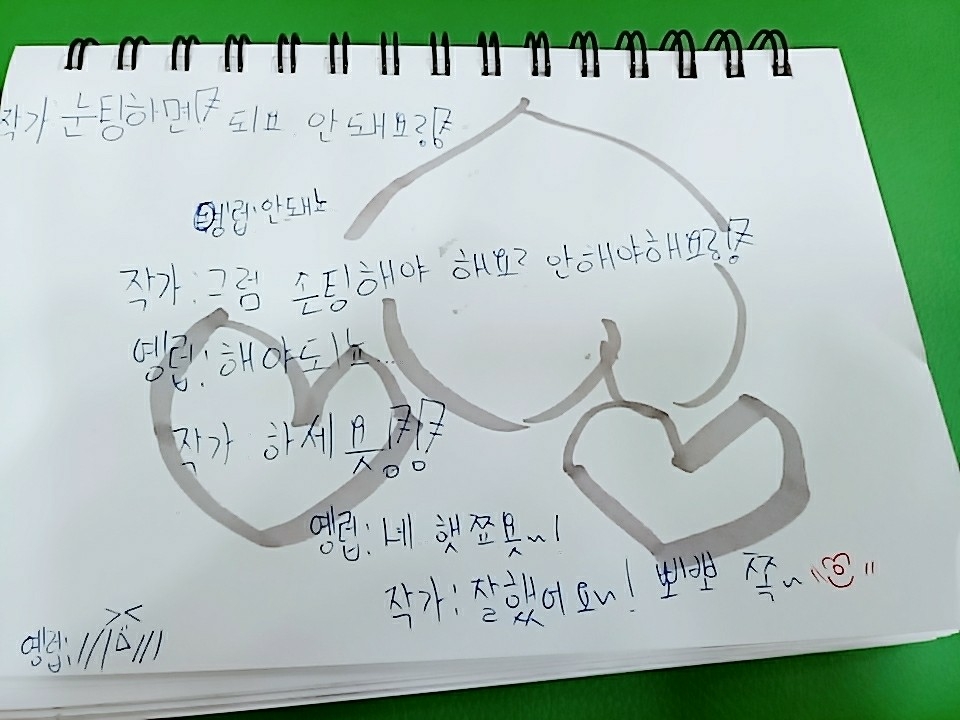 작가 눈팅하면 되요 안돼요
옝럽: 안돼뇨
작가: 그럼 손팅해야 해요? 안해야해요
옝럽: 해야도ㅣ뇨...
작가 하세욧
옝럽: 네 햇쬬욧~!
작가: 잘했어요~! 뽀뽀 쪽~
옝럽: /// ///